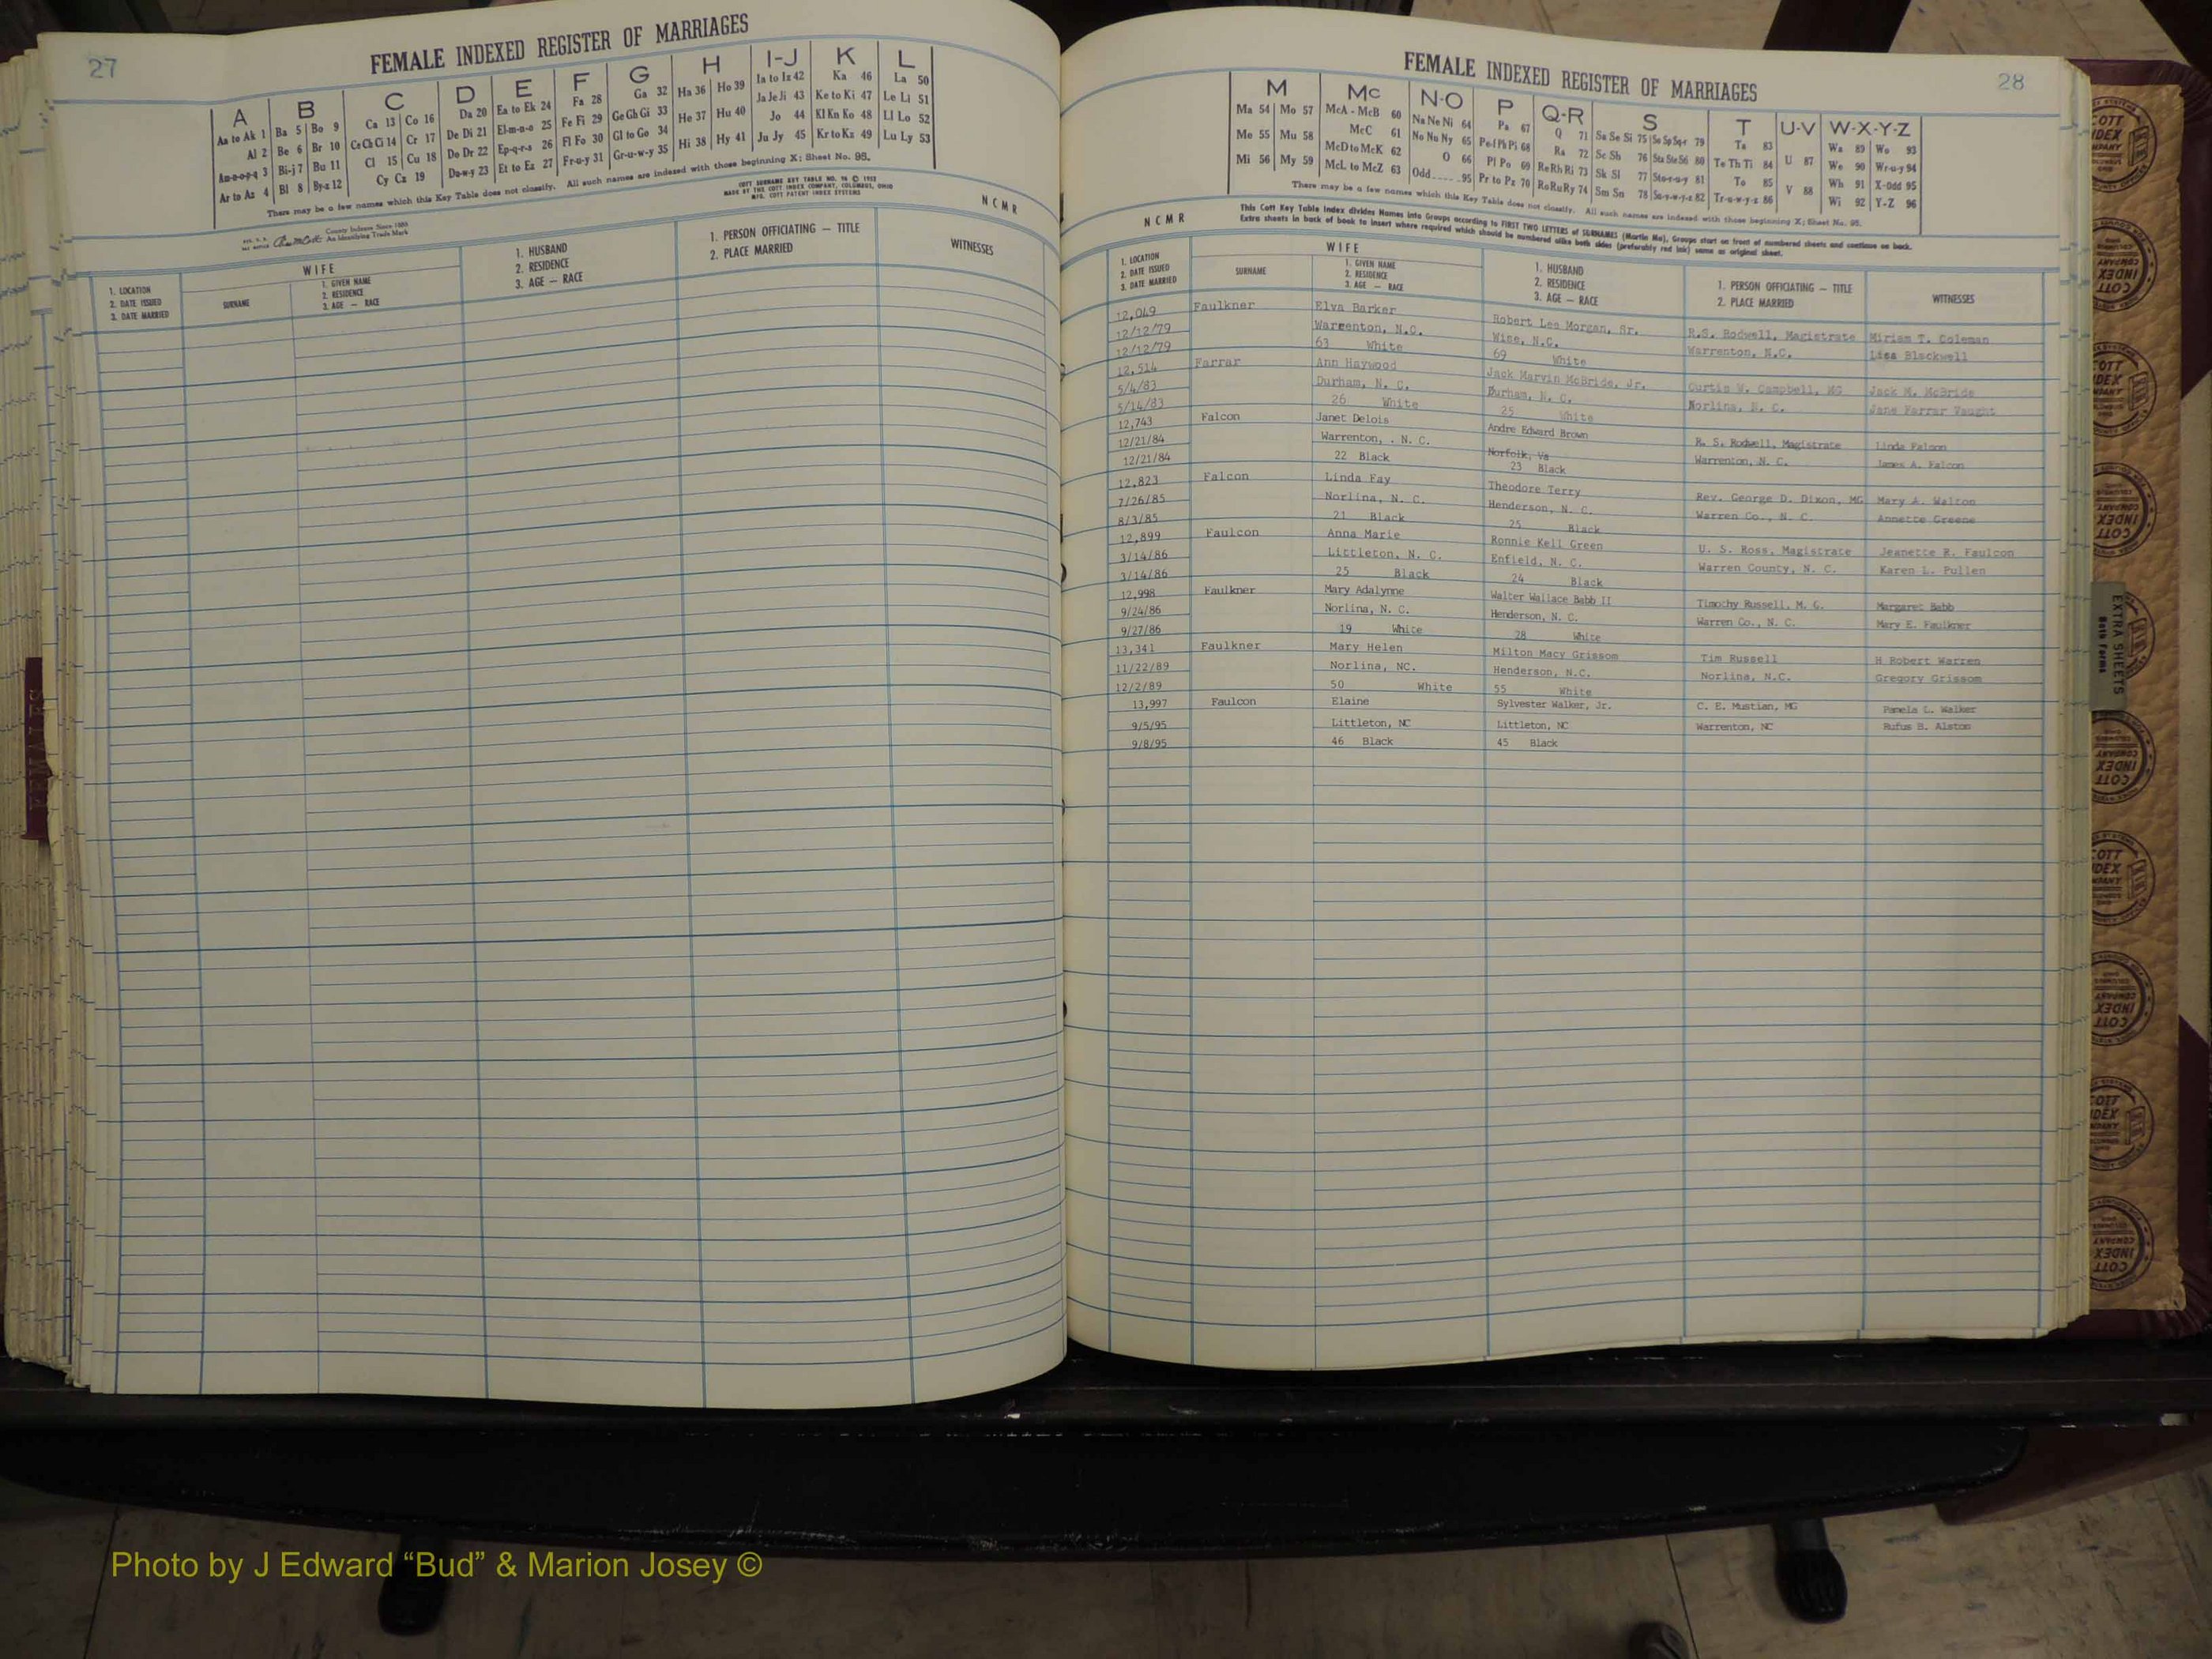 27
FEMALE INDEXED REGISTER OF MARRIAGES
A B C D E F G H I-J K L
Aa to Ak 1 Ba 5 Bo 9 Ca 13 Co 16 Da 20 Ea to Ek 24 Fa 28 Ga 32 Ha 36 Ho 39 Ia to Iz 42 Ka 46 La 50
Al 2 Be 6 Br 10 Ce Ch Ci 14 Cr 17 De Di 21 El-m-n-o 25 Fe Fi 29 Ge Gh Gi 33 He 37 Hu 40 Ja Je Ji 43 Ke to Ki 47 Le Li 51
Am-n-o-p-q 3 Bi-j 7 Bu 11 Cl 15 Cu 18 Do Dr 22 Ep-q-r-s 26 Fl Fo 30 Gl to Go 34 Hi 38 Hy 41 Jo 44 Kl Kn Ko 48 Ll Lo 52
Ar to Az 4 Bl 8 By-z 12 Cy Cz 19 Du-w-y 23 Et to Ez 27 Fr-u-y 31 Gr-u-w-y 35 Ju Jy 45 Kr to Kz 49 Lu Ly 53
There may be a few names which this Key Table does not classify. All such names are indexed with those beginning X; Sheet No. 95.
County Indexes Since 1888
An Identifying Trade Mark
COTT SURNAME KEY TABLE NO. 96 © 1952
MADE BY THE COTT INDEX COMPANY, COLUMBUS, OHIO
MFG. COTT PATENT INDEX SYSTEMS
NCMR
1. LOCATION
2. DATE ISSUED
3. DATE MARRIED
WIFE
SURNAME
1. GIVEN NAME
2. RESIDENCE
3. AGE — RACE
1. HUSBAND
2. RESIDENCE
3. AGE — RACE
1. PERSON OFFICIATING — TITLE
2. PLACE MARRIED
WITNESSES
FEMALES
28
FEMALE INDEXED REGISTER OF MARRIAGES
M Mc N-O P Q-R S T U-V W-X-Y-Z
Ma 54 Mo 57 McA - McB 60 Na Ne Ni 64 Pa 67 Q 71 Sa Se Si 75 So Sp Sq-r 79 Ta 83 U 87 Wa 89 Wo 93
Me 55 Mu 58 McC 61 No Nu Ny 65 Pe-f Ph Pi 68 Ra 72 Sc Sh 76 Sta Ste S6 80 Te Th Ti 84 V 88 We 90 Wr-u-y 94
Mi 56 My 59 McD to McK 62 O 66 Pl Po 69 Re Rh Ri 73 Sk Sl 77 Sto-r-u-y 81 To 85 Wh 91 X-Odd 95
McL to McZ 63 Odd 95 Pr to Pz 70 Ro Ru Ry 74 Sm Sn 78 Su-v-w-y-z 82 Tr-u-w-y-z 86 Wi 92 Y-Z 96
There may be a few names which this Key Table does not classify. All such names are indexed with those beginning X; Sheet No. 95.
NCMR
This Cott Key Table Index divides Names into Groups according to FIRST TWO LETTERS of SURNAMES (Martin Ma), Groups start on front of numbered sheets and continue on back.
Extra sheets in back of book to insert where required which should be numbered alike both sides (preferably red ink) same as original sheet.
1. LOCATION
2. DATE ISSUED
3. DATE MARRIED
WIFE
SURNAME
1. GIVEN NAME
2. RESIDENCE
3. AGE — RACE
1. HUSBAND
2. RESIDENCE
3. AGE — RACE
1. PERSON OFFICIATING — TITLE
2. PLACE MARRIED
WITNESSES
12,049 Faulkner Elva Barker Robert Lee Morgan, Sr. R.S. Rodwell, Magistrate Miriam T. Coleman
12/12/79 Warrenton, N.C. Wise, N.C. Warrenton, N.C. Lisa Blackwell
12/12/79 63 White 69 White
12,514 Farrar Ann Haywood Jack Marvin McBride, Jr. Curtis W. Campbell, MG Jack M. McBride
5/4/83 Durham, N. C. Durham, N. C. Norlina, N. C. Jane Farrar Vaught
5/14/83 26 White 25 White
12,743 Falcon Janet Delois Andre Edward Brown R. S. Rodwell, Magistrate Linda Falcon
12/21/84 Warrenton, . N. C. Norfolk, Va Warrenton, N. C. James A. Falcon
12/21/84 22 Black 23 Black
12,823 Falcon Linda Fay Theodore Terry Rev. George D. Dixon, MG Mary A. Walton
7/26/85 Norlina, N. C. Henderson, N. C. Warren Co., N. C. Annette Greene
8/3/85 21 Black 25 Black
12,899 Faulcon Anna Marie Ronnie Kell Green U. S. Ross, Magistrate Jeanette R. Faulcon
3/14/86 Littleton, N. C. Enfield, N. C. Warren County, N. C. Karen L. Pullen
3/14/86 25 Black 24 Black
12,998 Faulkner Mary Adalynne Walter Wallace Babb II Timothy Russell, M. G. Margaret Babb
9/24/86 Norlina, N. C. Henderson, N. C. Warren Co., N. C. Mary E. Faulkner
9/27/86 19 White 28 White
13,341 Faulkner Mary Helen Milton Macy Grissom Tim Russell H Robert Warren
11/22/89 Norlina, NC. Henderson, N.C. Norlina, N.C. Gregory Grissom
12/2/89 50 White 55 White
13,997 Faulcon Elaine Sylvester Walker, Jr. C. E. Mustian, MG Pamela C. Walker
9/5/95 Littleton, NC Littleton, NC Warrenton, NC Rufus B. Alston
9/8/95 46 Black 45 Black
EXTRA SHEETS
Both Forms
COTT INDEX COMPANY
Photo by J Edward “Bud” & Marion Josey ©